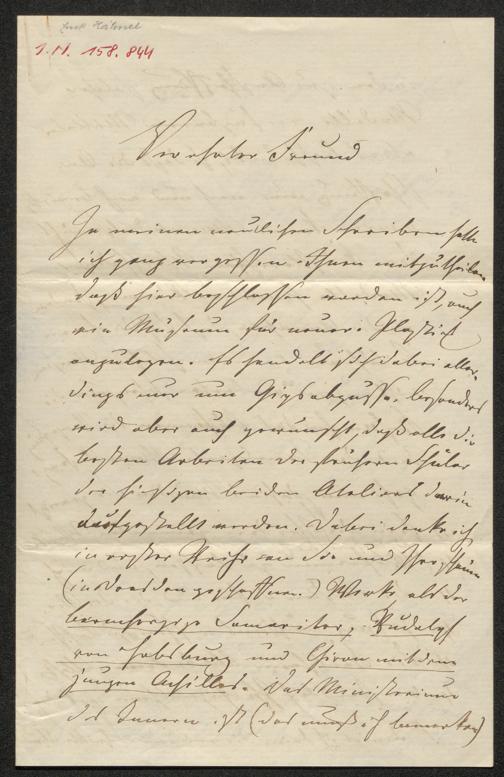 Ernst Hähnel
I. N. 158.844
Verehrter Freund
In meinem neulichen Schreiben hatte
ich ganz vergessen Ihnen mitzutheilen
daß hier beschlossen worden ist, auch
ein Museum für neuere Plastik
anzulegen. Es handelt sich dabei aller-
dings nur um Gipsabgüsse, besonders
wird aber auch gewünscht, daß alle die
besten Arbeiten der frühern Schüler
der hiesigen beiden Ateliers darin
aufgestellt werden. Dabei denke ich
in erster Reihe an Sie und Ihre schönen
(in Dresden geschaffenen) Werke als der
barmherzige Samariter, Rudolph
von Habsburg und Chiron mit dem
jungen Achilles. Das Ministerium
des Innern ist (das muß ich bemerken)